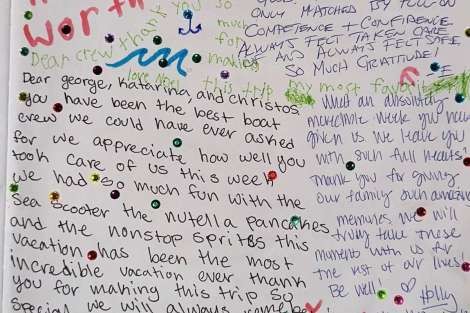 worth
Dear crew thank you so
much
for
making
this trip
my most favorite
love Noel
ONLY MATCHED BY
COMPETENCE + CONFIDENCE
ALWAYS FELT TAKEN CARE
OF AND ALWAYS FELT SAFE
SO MUCH GRATITUDE!
Dear george, Katarina, and christos
You have been the best boat
crew we could have ever asked
for we appreciate how well you
took care of us this week
we had so much fun with the
sea scooter the nutella pancakes
and the nonstop sprites this
vacation has been the most
incredible vacation ever thank
you for making this trip so
special we will always remember
What an absolutely
week you have
given us. We leave you
with such full hearts!
Thank you for giving
our family such amazing
memories. We will
truly take these
moments with us for
the rest of our lives!
Be well! Holly